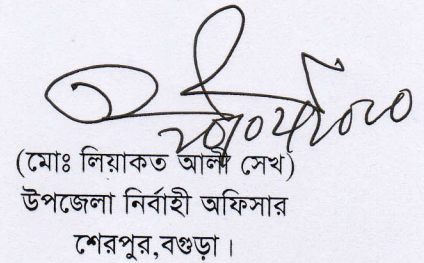 (মোঃ লিয়াকত আলী সেখ)
উপজেলা নির্বাহী অফিসার
শেরপুর,বগুড়া।